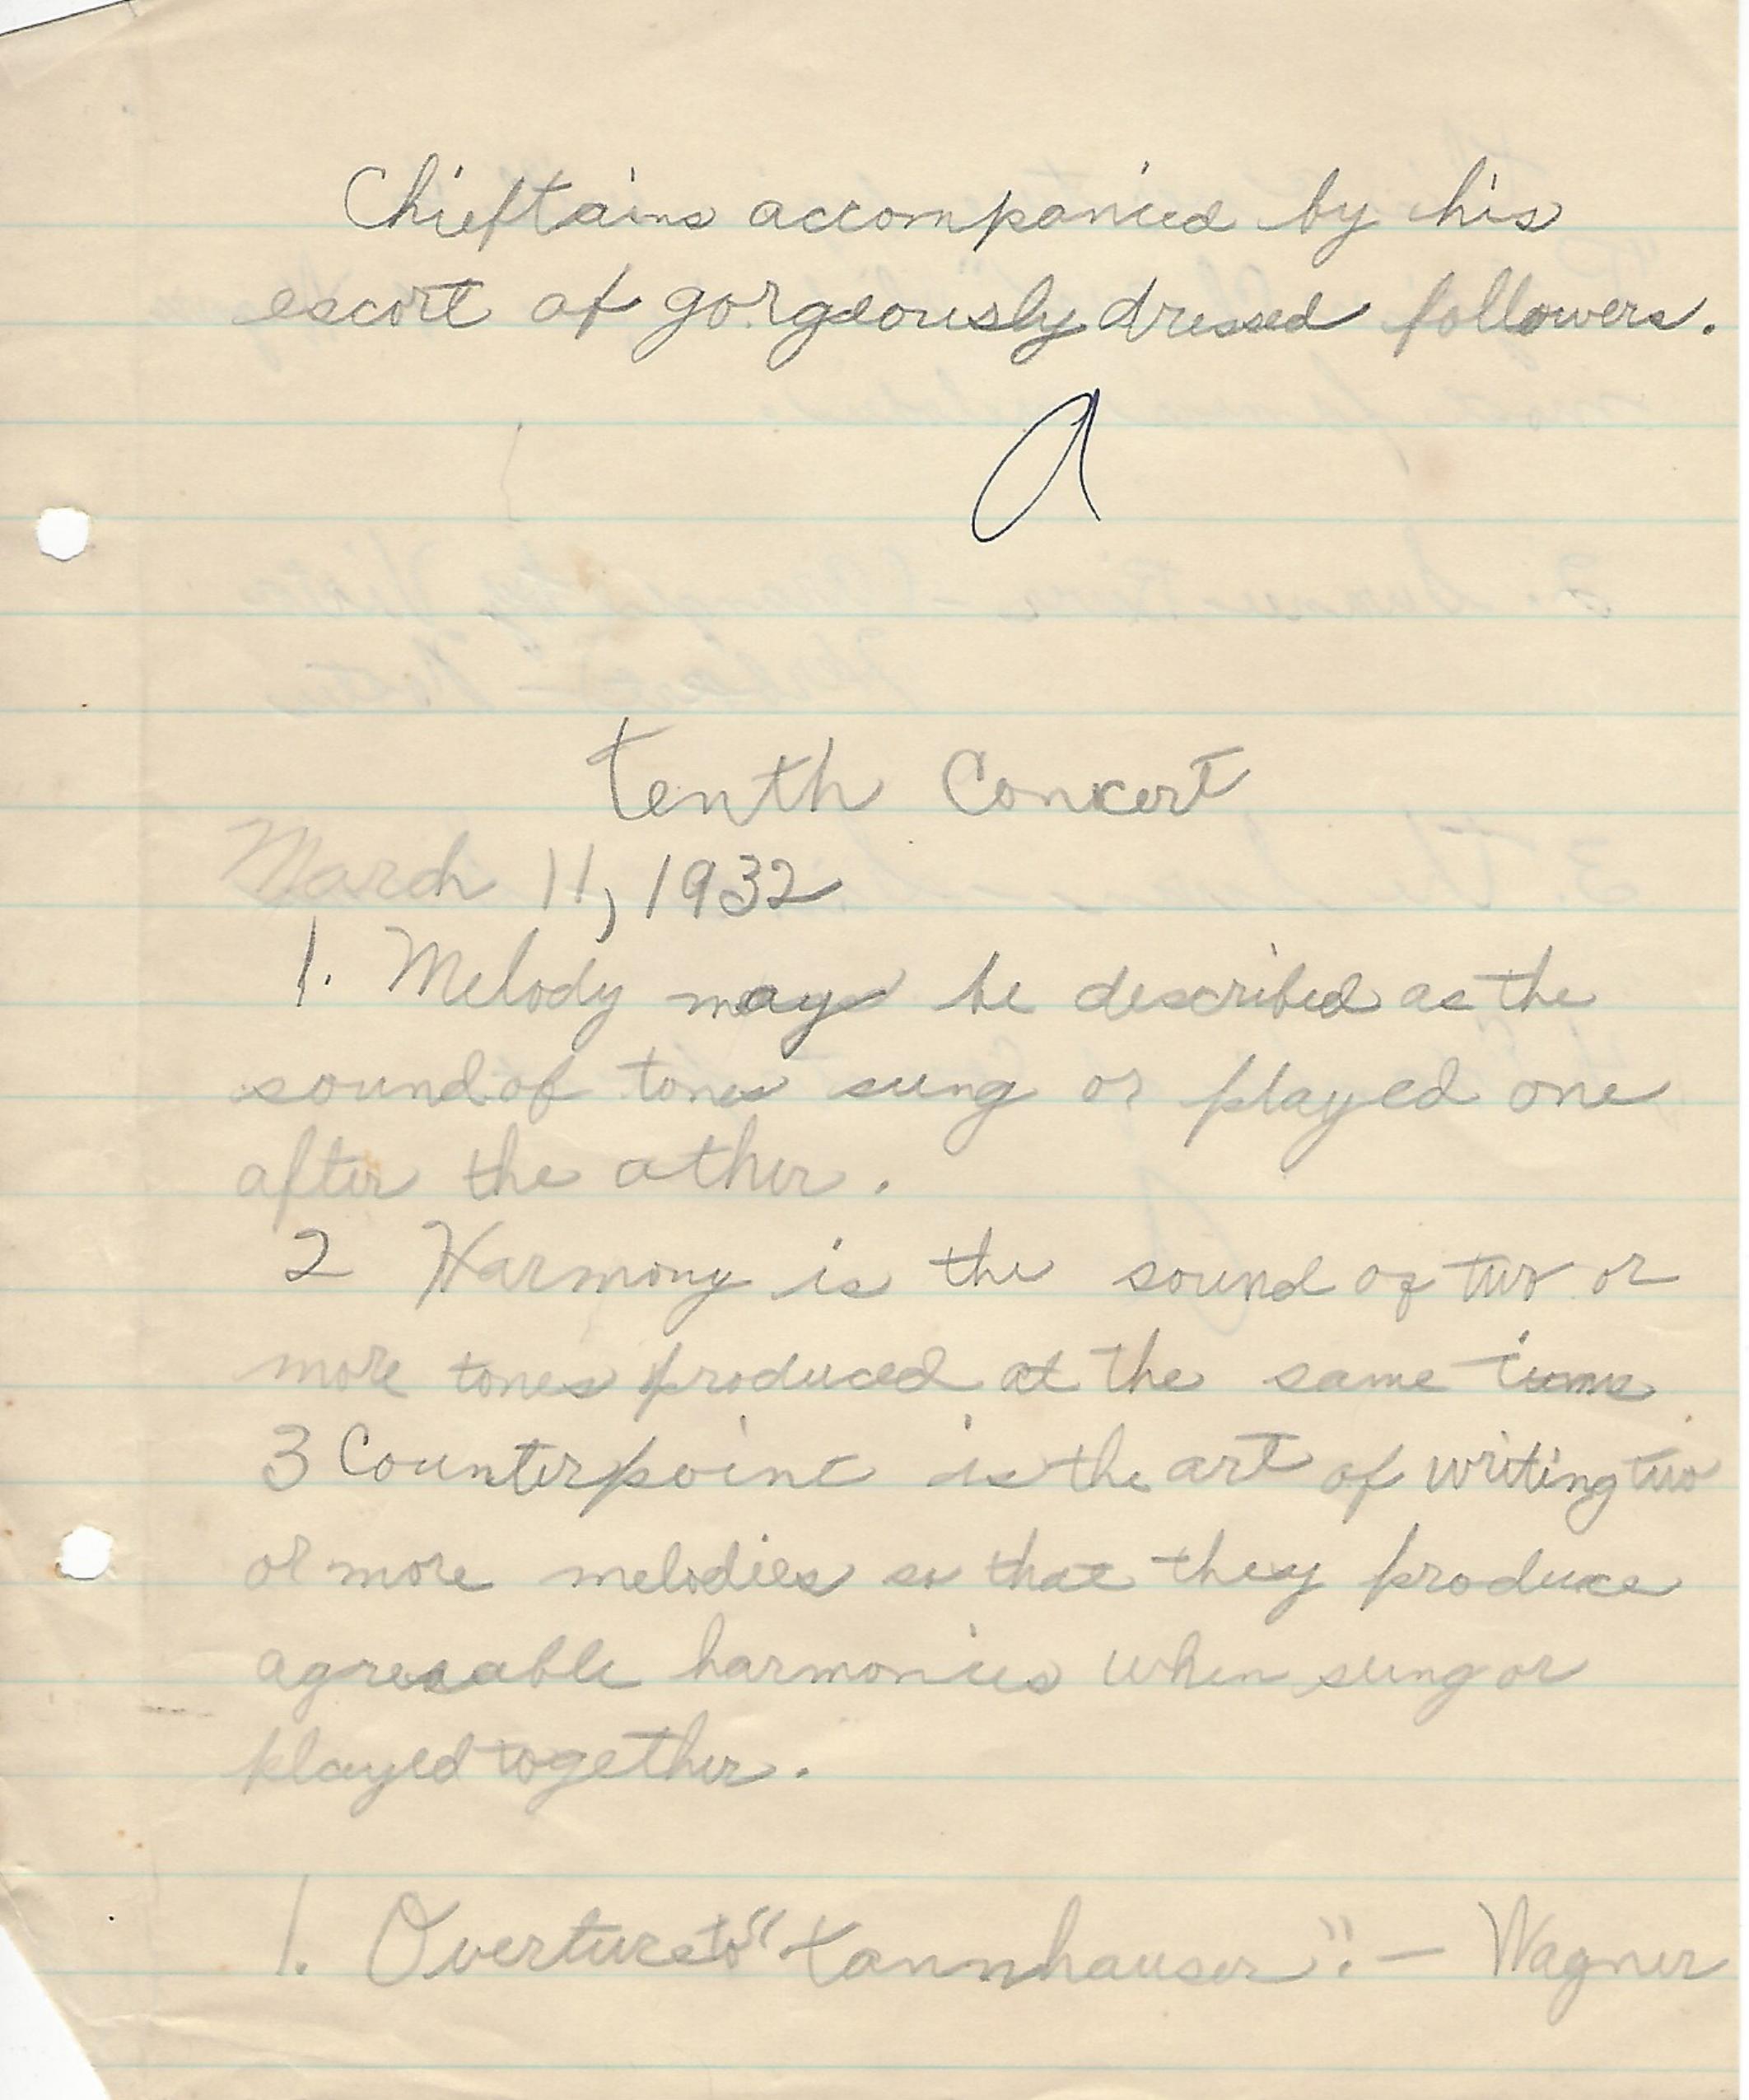 Chieftains accompanied by his
escort of gorgeously dressed followers.
A
Tenth Concert
March 11, 1932
1. Melody may be described as the
sound of tones sung or played one
after the other.
2 Harmony is the sound of two or
more tones produced at the same time.
3 Counterpoint is the art of writing two
or more melodies so that they produce
agreeable harmonies when sung or
played together.
1. Overture to "Tannhauser". — Wagner